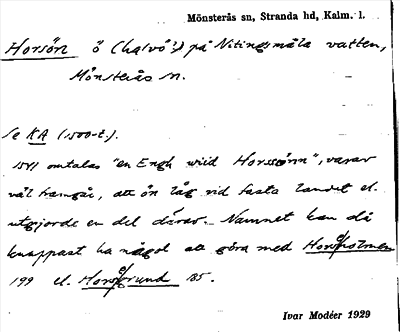 Mönsterås sn, Stranda hd, Kalm. l.
Horsön ö (halvö?) på Nitingsmåla vatten,
Mönsterås sn.
Se KA (1500-t.).
1541 omtalas "en Engh wiid Horssönn", varav
väl framgår, att ön låg vid fasta landet el.
utgjorde en del därav. Namnet kan då
knappast ha något att göra med Horsholmen
199 el. Horsgrund 185.
Ivar Modéer 1929